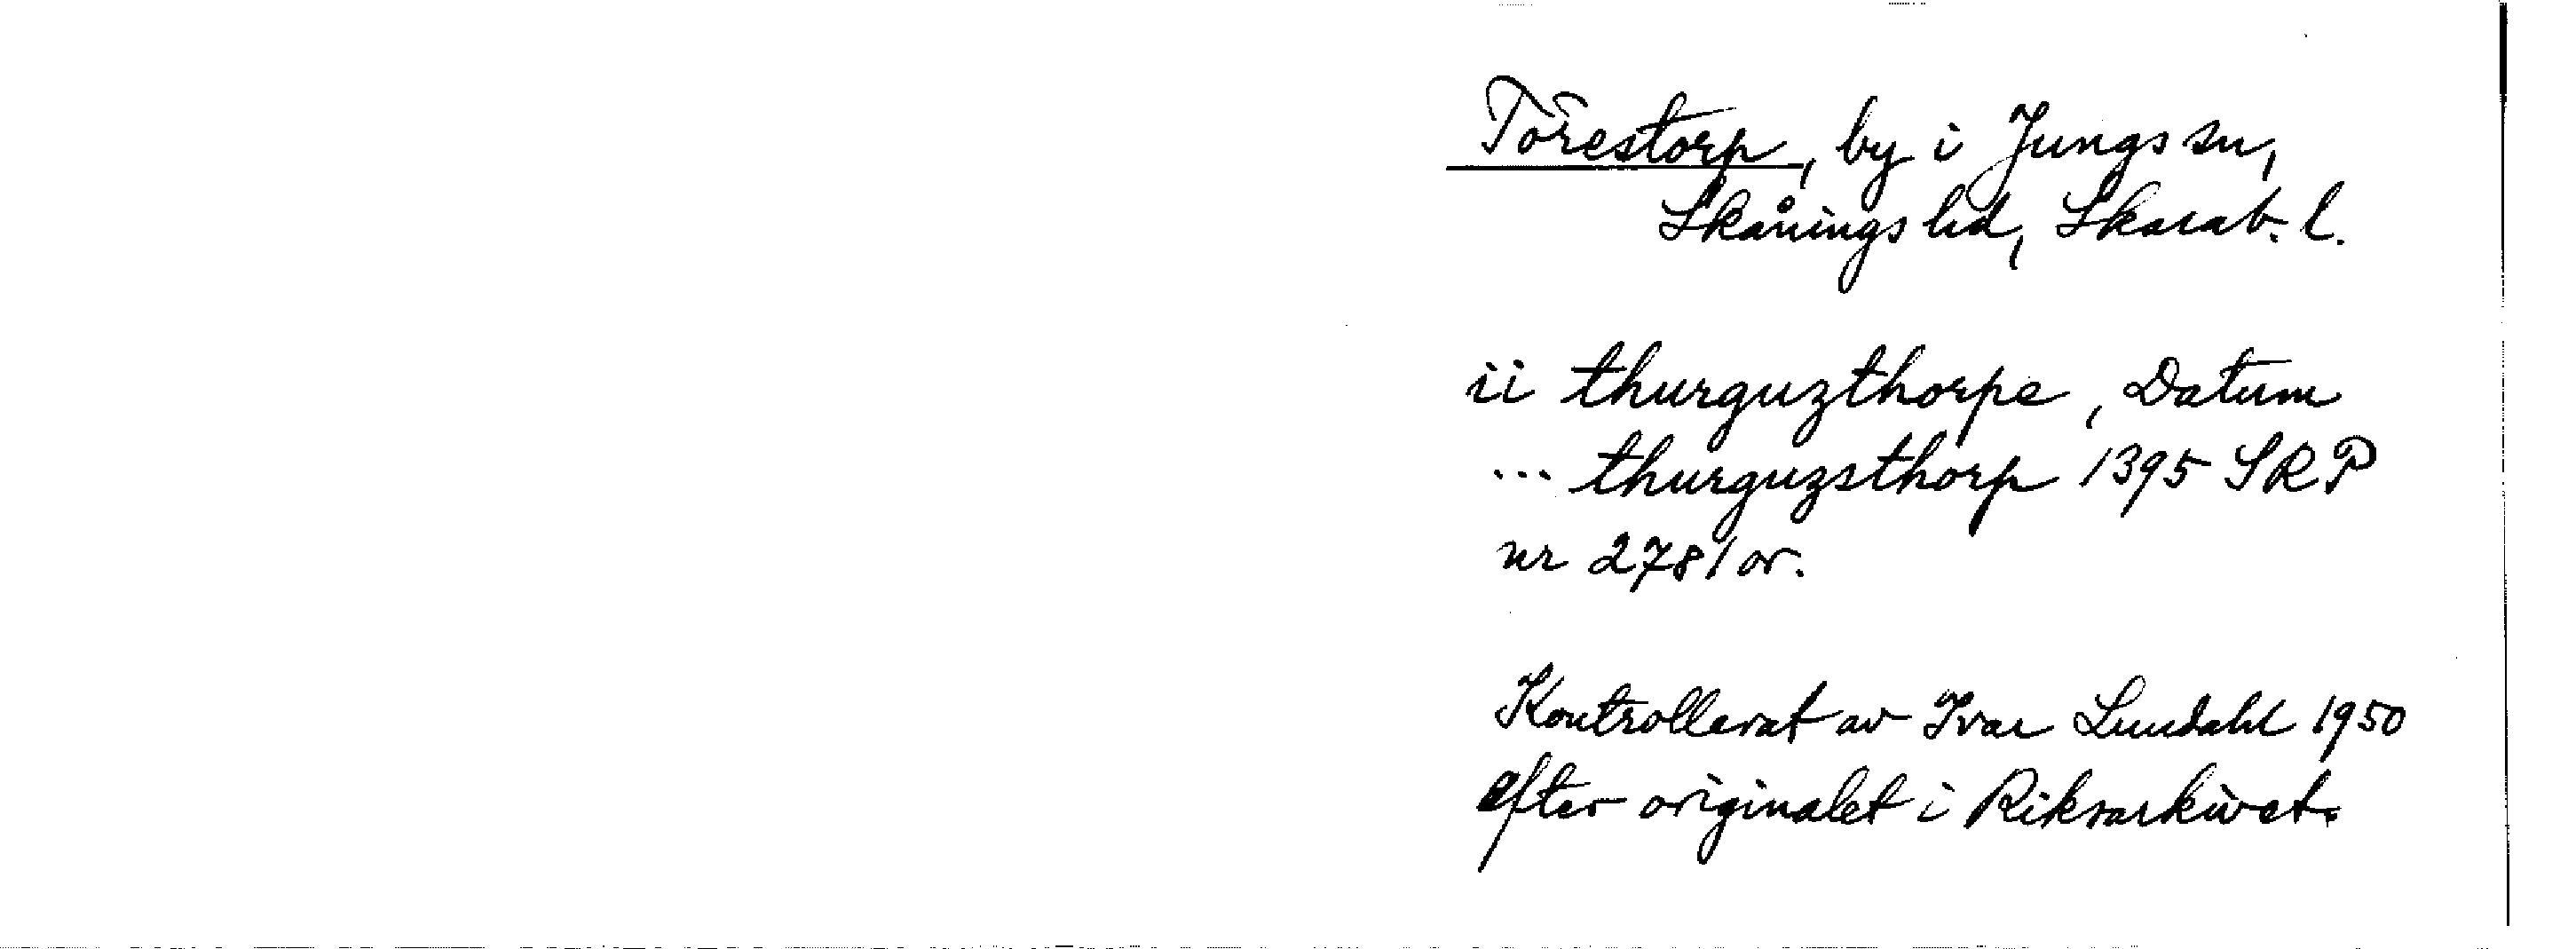 Törestorp, by i Jungs sn,
Skånings hd, Skarab. l.
ii thurguzthorpe, Datum
... thurguzsthorp 1395 SRP
nr 2781 or.
Kontrollerat av Ivar Lundahl 1950
efter originalet i Riksarkivet.